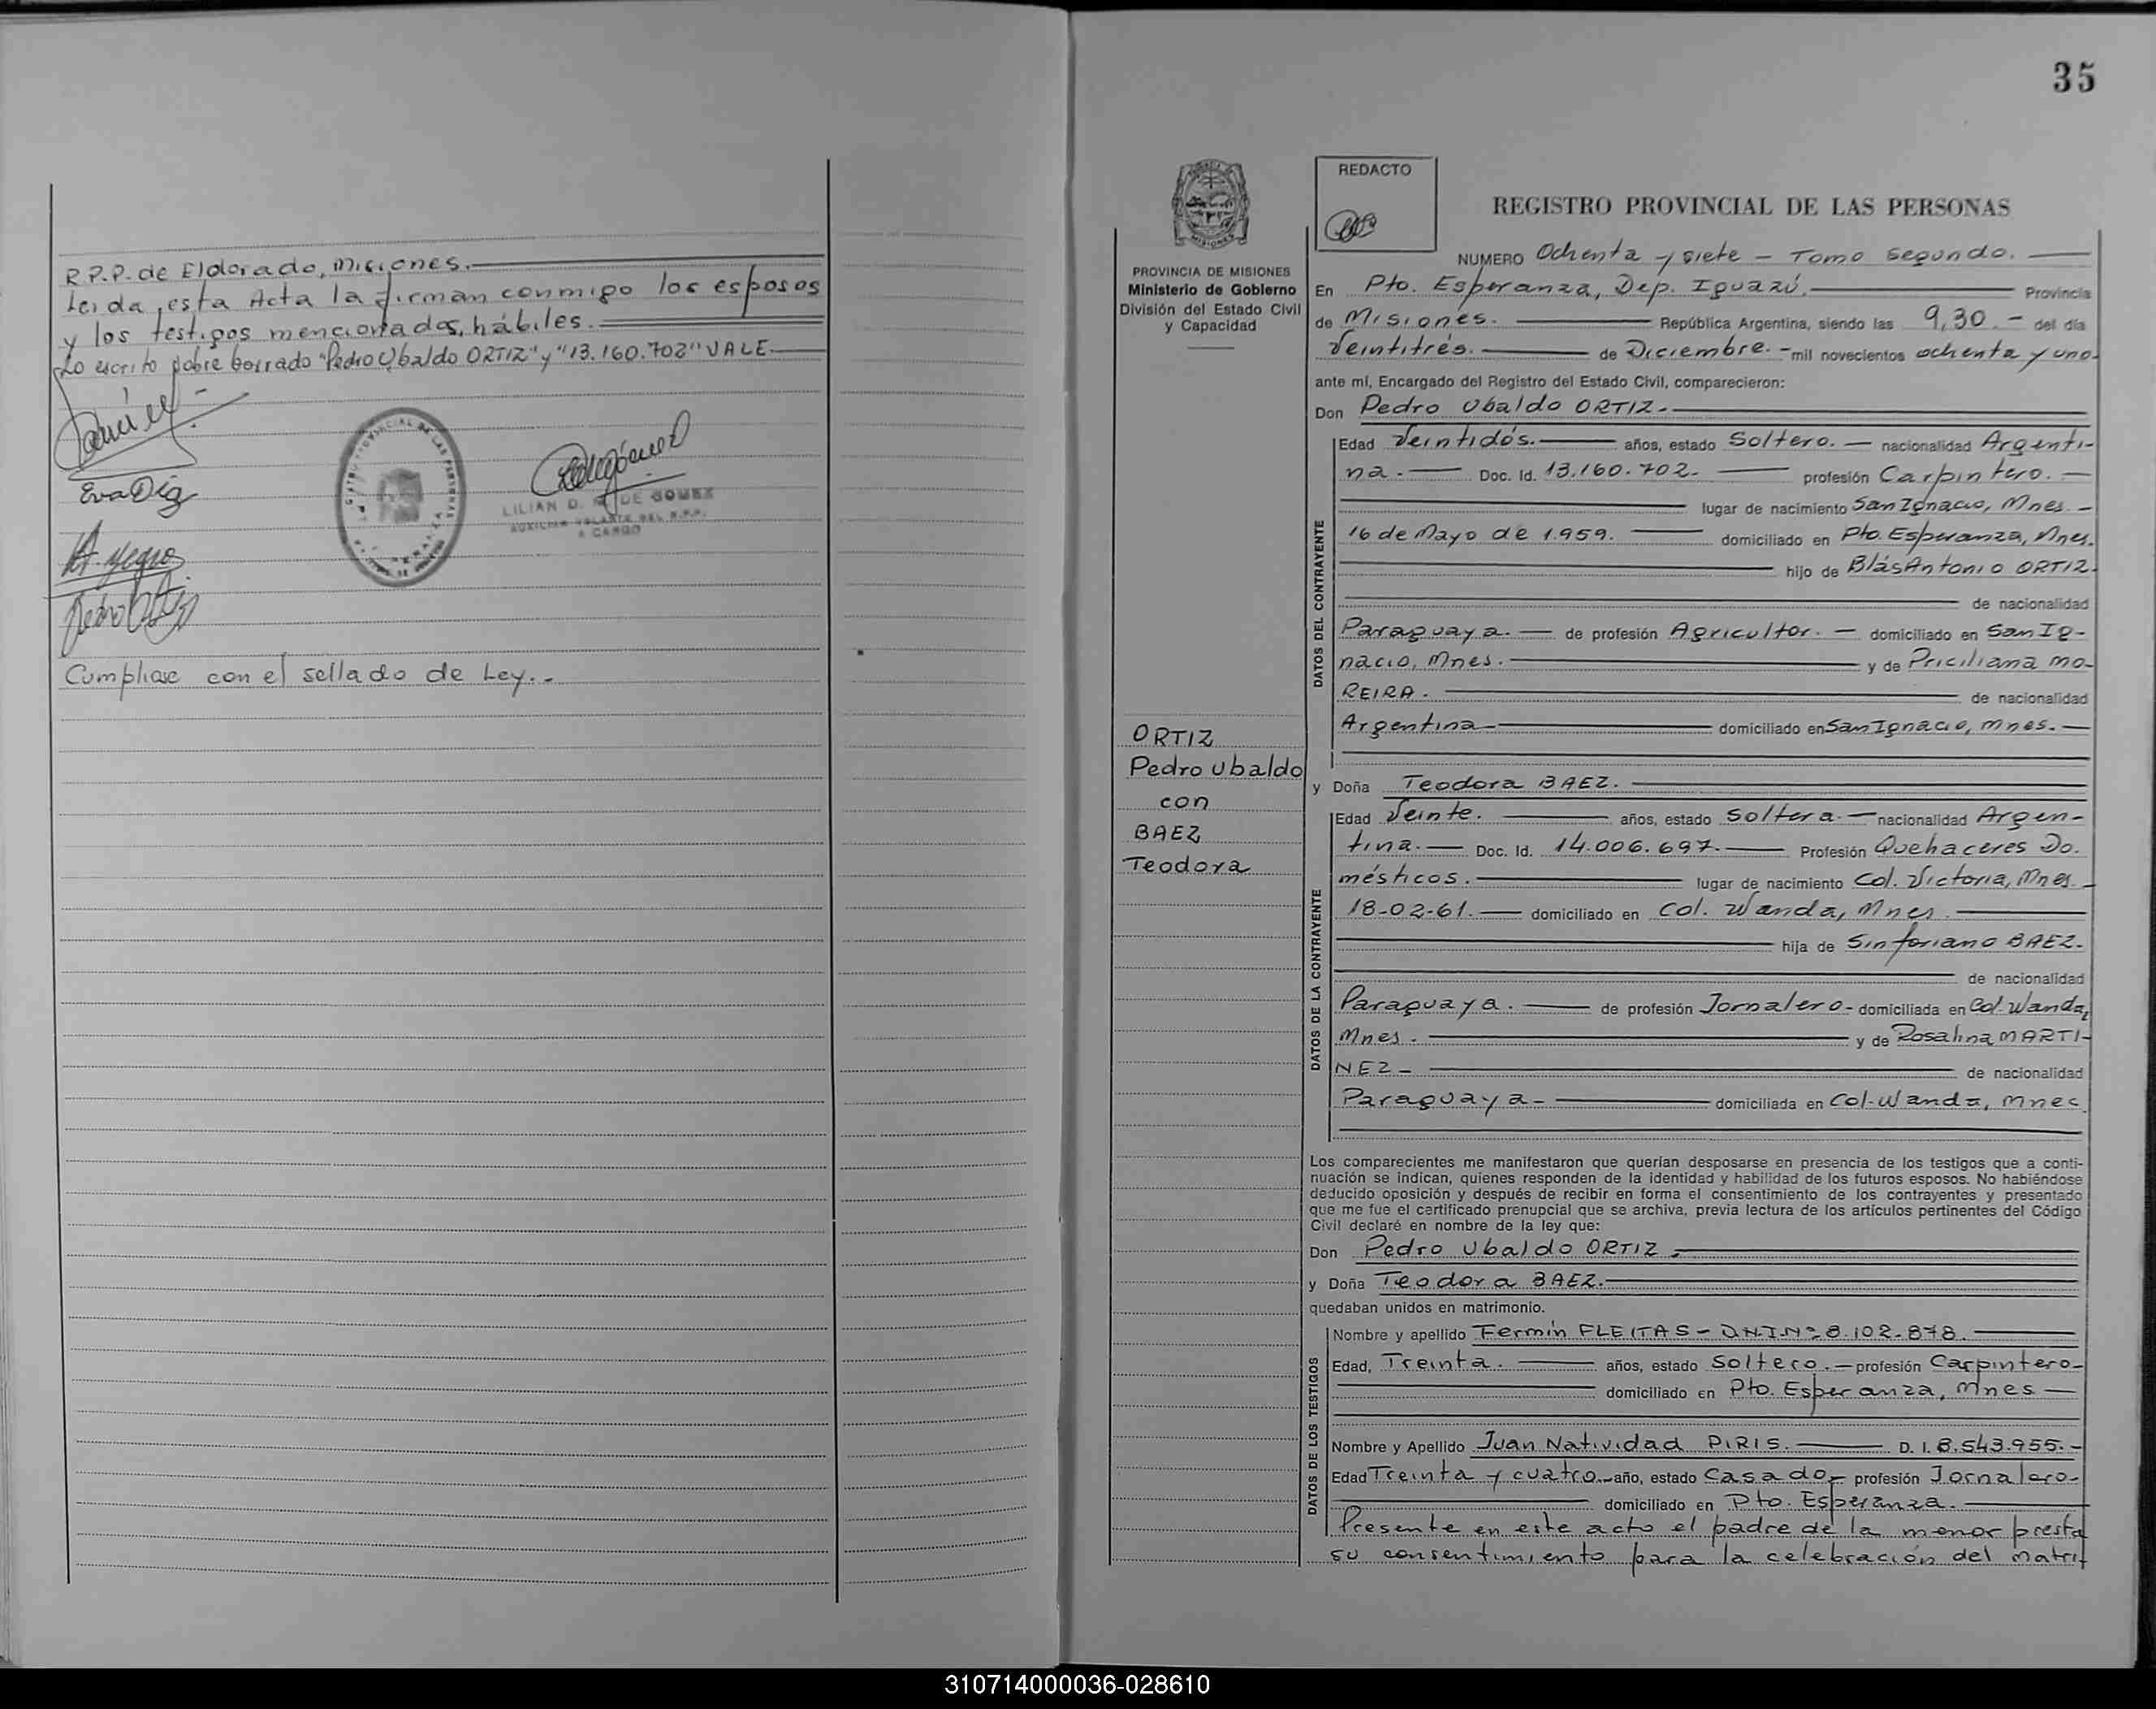 R.P.P. de Eldorado, Misiones.
Leida, esta Acta la firman conmigo los esposos
y los testigos mencionados, hábiles.
Lo escrito sobre borrado "Pedro Ubaldo ORTIZ" y "13.160.702" VALE.
Eva Díaz
A. Negro
Pedro Ortiz
LILIAN D. DE GOMEZ
AUXILIAR VOLANTE DEL R.P.P.
A CARGO
Cumpliase con el sellado de Ley.-
35
REDACTO
REGISTRO PROVINCIAL DE LAS PERSONAS
PROVINCIA DE MISIONES
Ministerio de Gobierno
División del Estado Civil
y Capacidad
ORTIZ
Pedro Ubaldo
con
BAEZ
Teodora
NUMERO Ochenta y siete - Tomo segundo.
En Pto. Esperanza, Dep. Iguazú. Provincia
de Misiones. República Argentina, siendo las 9,30.- del día
Veintitrés. de Diciembre.- mil novecientos ochenta y uno.
ante mí, Encargado del Registro del Estado Civil, comparecieron:
Don Pedro Ubaldo ORTIZ.-
DATOS DEL CONTRAYENTE
Edad Veintidós. años, estado Soltero. nacionalidad Argenti-
na. Doc. Id. 13.160.702. profesión Carpintero.
lugar de nacimiento San Ignacio, Mnes.
16 de Mayo de 1.959. domiciliado en Pto. Esperanza, Mnes.
hijo de Blás Antonio ORTIZ.
de nacionalidad
Paraguaya. de profesión Agricultor. domiciliado en San Ig-
nacio, Mnes. y de Priciliana MO-
REIRA. de nacionalidad
Argentina domiciliado en San Ignacio, Mnes.
y Doña Teodora BAEZ.
DATOS DE LA CONTRAYENTE
Edad Veinte. años, estado Soltera. nacionalidad Argen-
tina. Doc. Id. 14.006.697. Profesión Quehaceres Do.
mésticos. lugar de nacimiento Col. Victoria, Mnes.
18-02-61. domiciliado en Col. Wanda, Mnes.
hija de Sinforiano BAEZ.
de nacionalidad
Paraguaya. de profesión Jornalero- domiciliada en Col. Wanda,
Mnes. y de Rosalina MARTI-
NEZ- de nacionalidad
Paraguaya- domiciliada en Col. Wanda, Mnes
Los comparecientes me manifestaron que querían desposarse en presencia de los testigos que a conti-
nuación se indican, quienes responden de la identidad y habilidad de los futuros esposos. No habiéndose
deducido oposición y después de recibir en forma el consentimiento de los contrayentes y presentado
que me fue el certificado prenupcial que se archiva, previa lectura de los artículos pertinentes del Código
Civil declaré en nombre de la ley que:
Don Pedro Ubaldo ORTIZ
y Doña Teodora BAEZ.
quedaban unidos en matrimonio.
DATOS DE LOS TESTIGOS
Nombre y apellido Fermín FLEITAS - D.N.I.Nº 8.102.878.
Edad, Treinta. años, estado Soltero. profesión Carpintero-
domiciliado en Pto. Esperanza, Mnes
Nombre y Apellido Juan Natividad PIRIS. D. I. 8.543.955.-
Edad Treinta y cuatro.- año, estado Casado- profesión Jornalero-
domiciliado en Pto. Esperanza.
Presente en este acto el padre de la menor presta
su consentimiento para la celebración del matri-
310714000036-028610